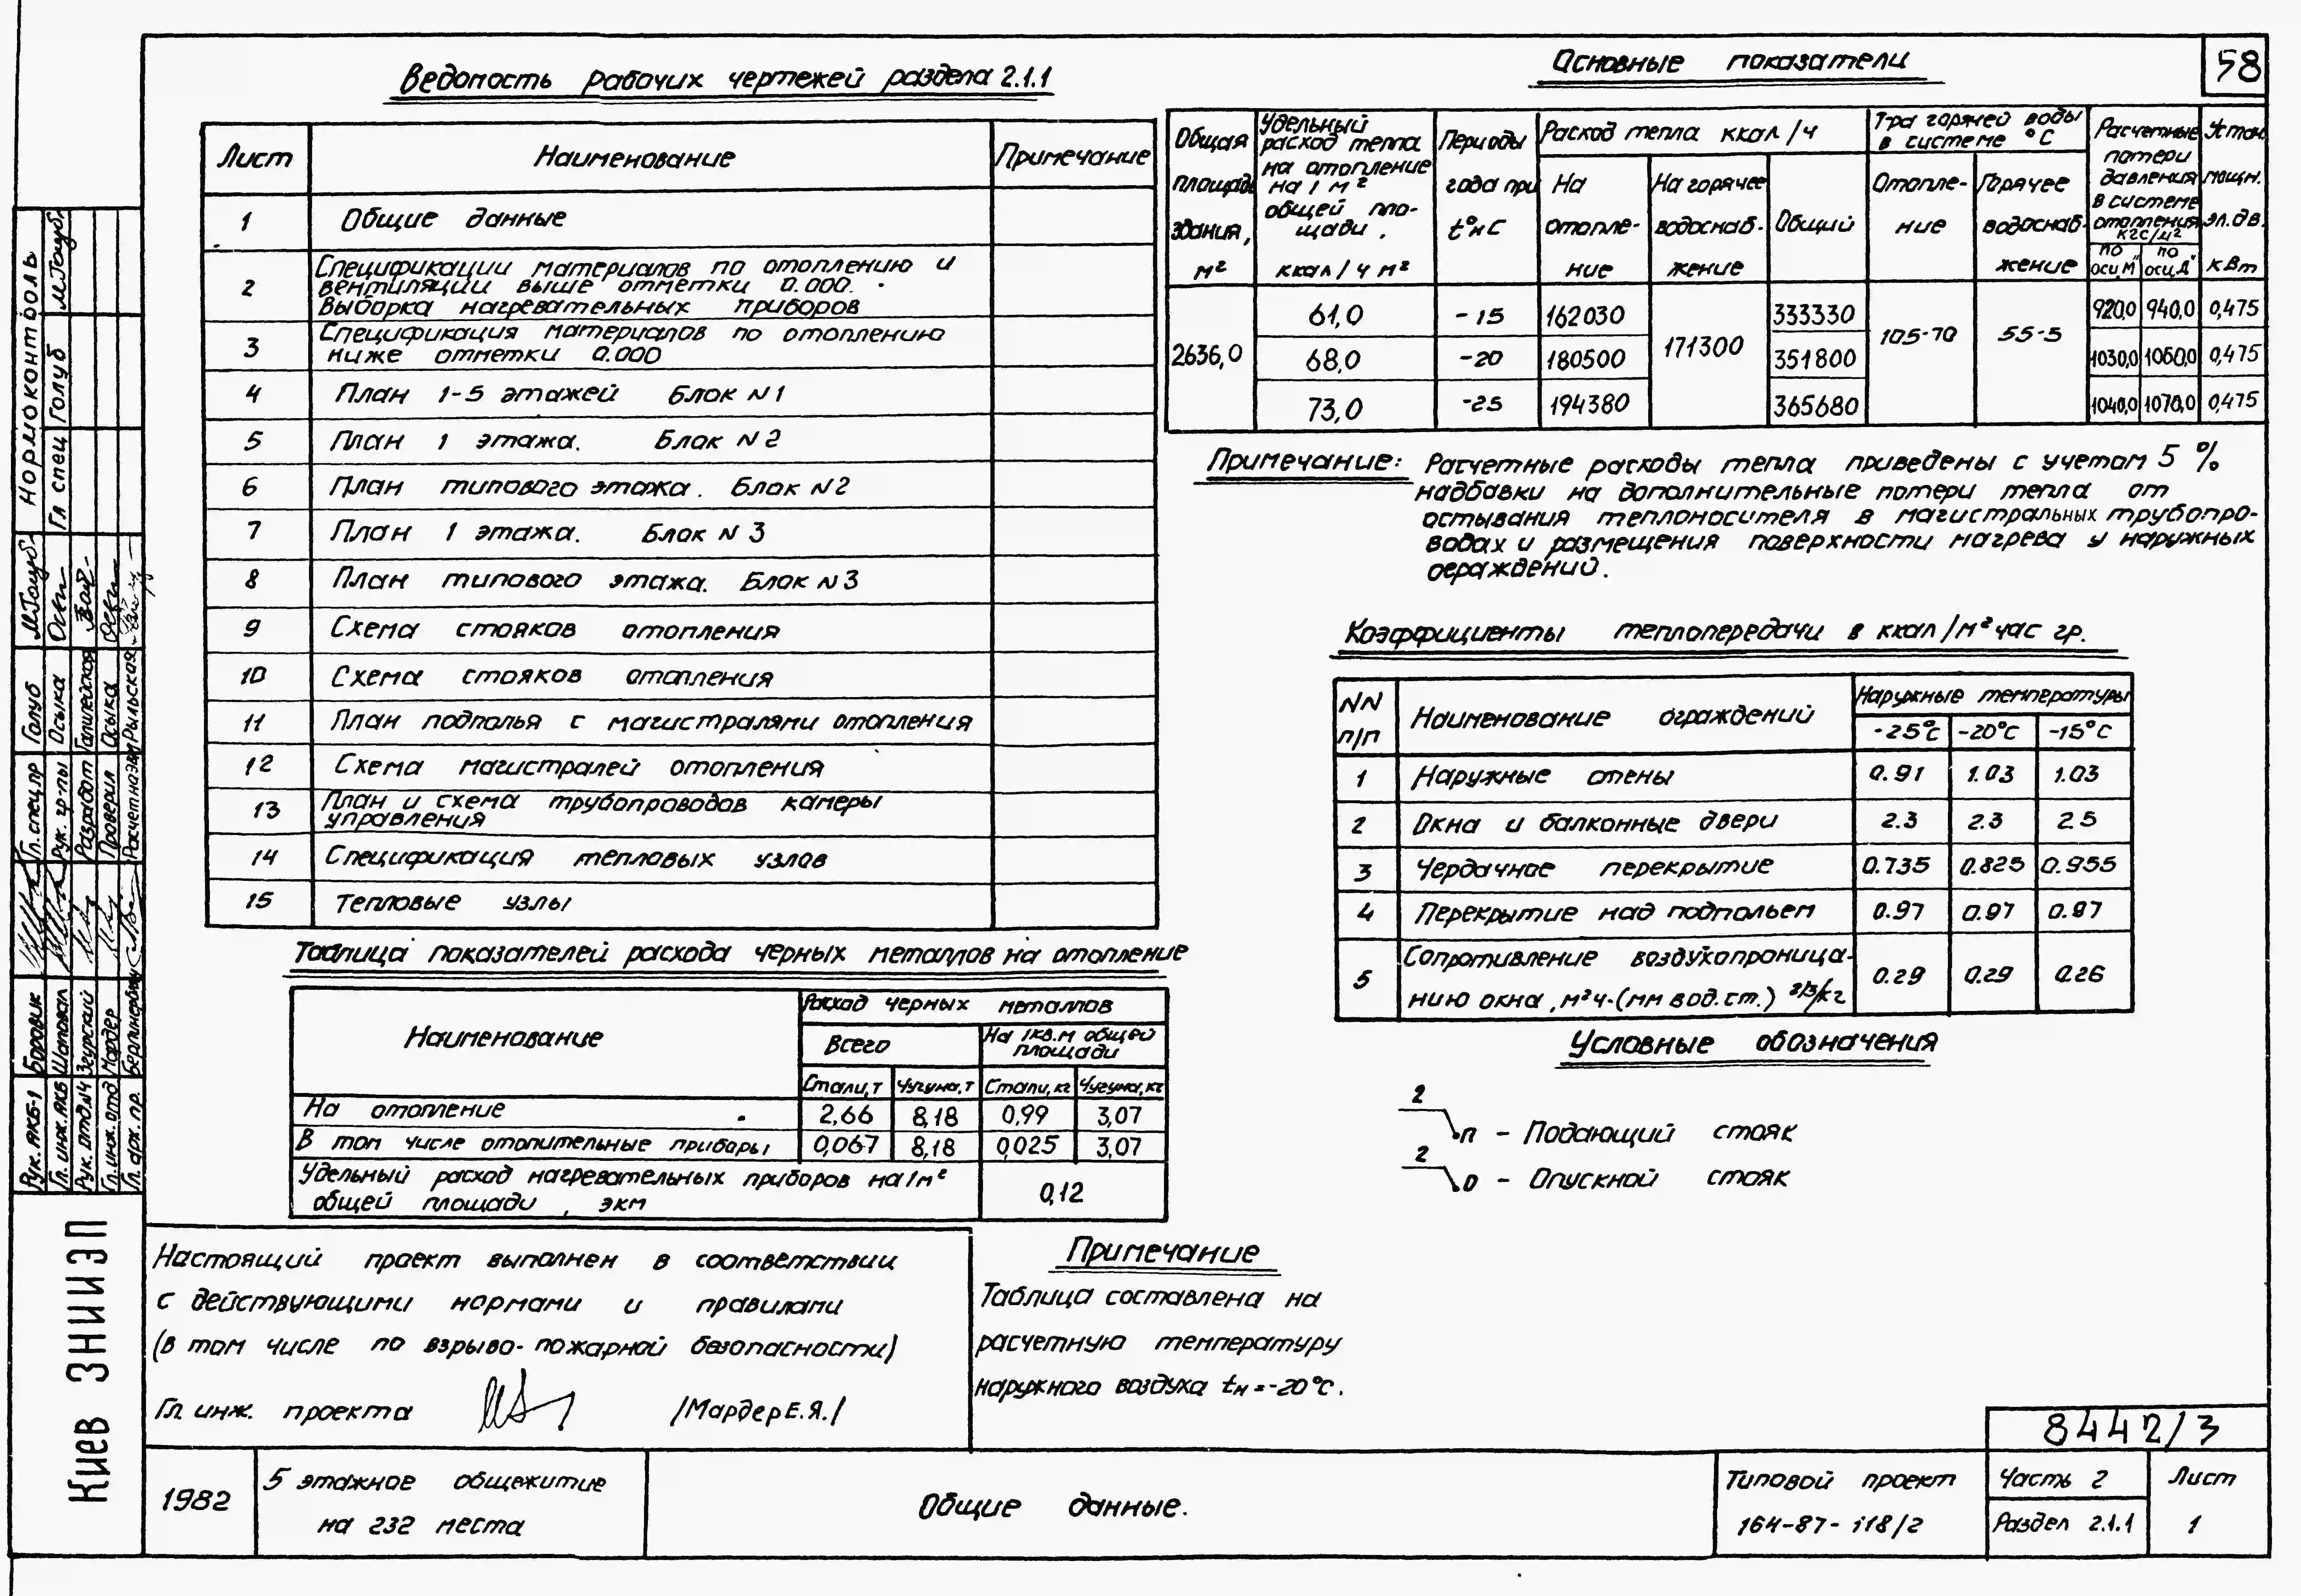 58
Ведомость рабочих чертежей раздела 2.1.1
Лист Наименование Примечание
1 Общие данные
2 Спецификации материалов по отоплению и
вентиляции выше отметки 0.000.
Выборка нагревательных приборов
3 Спецификация материалов по отоплению
ниже отметки 0.000
4 План 1-5 этажей Блок N1
5 План 1 этажа. Блок N2
6 План типового этажа. Блок N2
7 План 1 этажа. Блок N3
8 План типового этажа. Блок N3
9 Схема стояков отопления
10 Схема стояков отопления
11 План подполья с магистралями отопления
12 Схема магистралей отопления
13 План и схема трубопроводов камеры
управления
14 Спецификация тепловых узлов
15 Тепловые узлы
Таблица показателей расхода черных металлов на отопление
Наименование
Расход черных металлов
Всего
На 1кв.м общей
площади
Стали, т Чугуна, т Стали, кг Чугуна, кг
На отопление 2,66 8,18 0,99 3,07
В том числе отопительные приборы 0,067 8,18 0,025 3,07
Удельный расход нагревательных приборов на 1м²
общей площади, экм 0,12
Основные показатели
Общая
площадь
здания,
м²
Удельный
расход тепла
на отопление
на 1 м²
общей пло-
щади,
ккал/ч м²
Периоды
года при
t°н С
Расход тепла ккал/ч
На
отопле-
ние
На горячее
водоснаб-
жение
Общий
Т-ра горячей воды
в системе °С
Отопле-
ние
Горячее
водоснаб-
жение
Расчетные
потери
давления
в системе
отопления
кгс/м²
по
оси„М"
по
оси„Д"
Устан.
мощн.
эл.дв.
кВт
2636,0
61,0 -15 162030 171300 333330 105-70 55-5 920,0 940,0 0,475
68,0 -20 180500 351800 1030,0 1060,0 0,475
73,0 -25 194380 365680 1040,0 1070,0 0,475
Примечание: Расчетные расходы тепла приведены с учетом 5 %
надбавки на дополнительные потери тепла от
остывания теплоносителя в магистральных трубопро-
водах и размещения поверхности нагрева у наружных
ограждений.
Коэффициенты теплопередачи в ккал/м² час гр.
NN
п/п
Наименование ограждений
Наружные температуры
-25°С -20°С -15°С
1 Наружные стены 0.91 1.03 1.03
2 Окна и балконные двери 2.3 2.3 2.5
3 Чердачное перекрытие 0.735 0.825 0.955
4 Перекрытие над подпольем 0.97 0.97 0.97
5 Сопротивление воздухопроница-
нию окна, м²ч·(мм вод.ст.) 2/3/кг 0.29 0.29 0.26
Условные обозначения
2
п - Подающий стояк
2
о - Опускной стояк
Настоящий проект выполнен в соответствии
с действующими нормами и правилами
(в том числе по взрыво-пожарной безопасности)
Гл. инж. проекта /Мардер Е.Я./
Примечание
Таблица составлена на
расчетную температуру
наружного воздуха tн=-20°С.
8442/3
1982
5 этажное общежитие
на 232 места
Общие данные.
Типовой проект
164-87-118/2
Часть 2
Раздел 2.1.1
Лист
1
Киев ЗНИИЭП
Нормоконтроль
Гл спец Голуб
Гл. спец.пр Голуб
Рук. гр-пы Осыка
Разработ
Проверил Осыка
Рыльская
Рук. АКБ-1 Боровик
Гл. инж. АКБ Шаповал
Рук. отд.№4 Згурский
Гл. инж. отд Мардер
Гл. арх. пр.